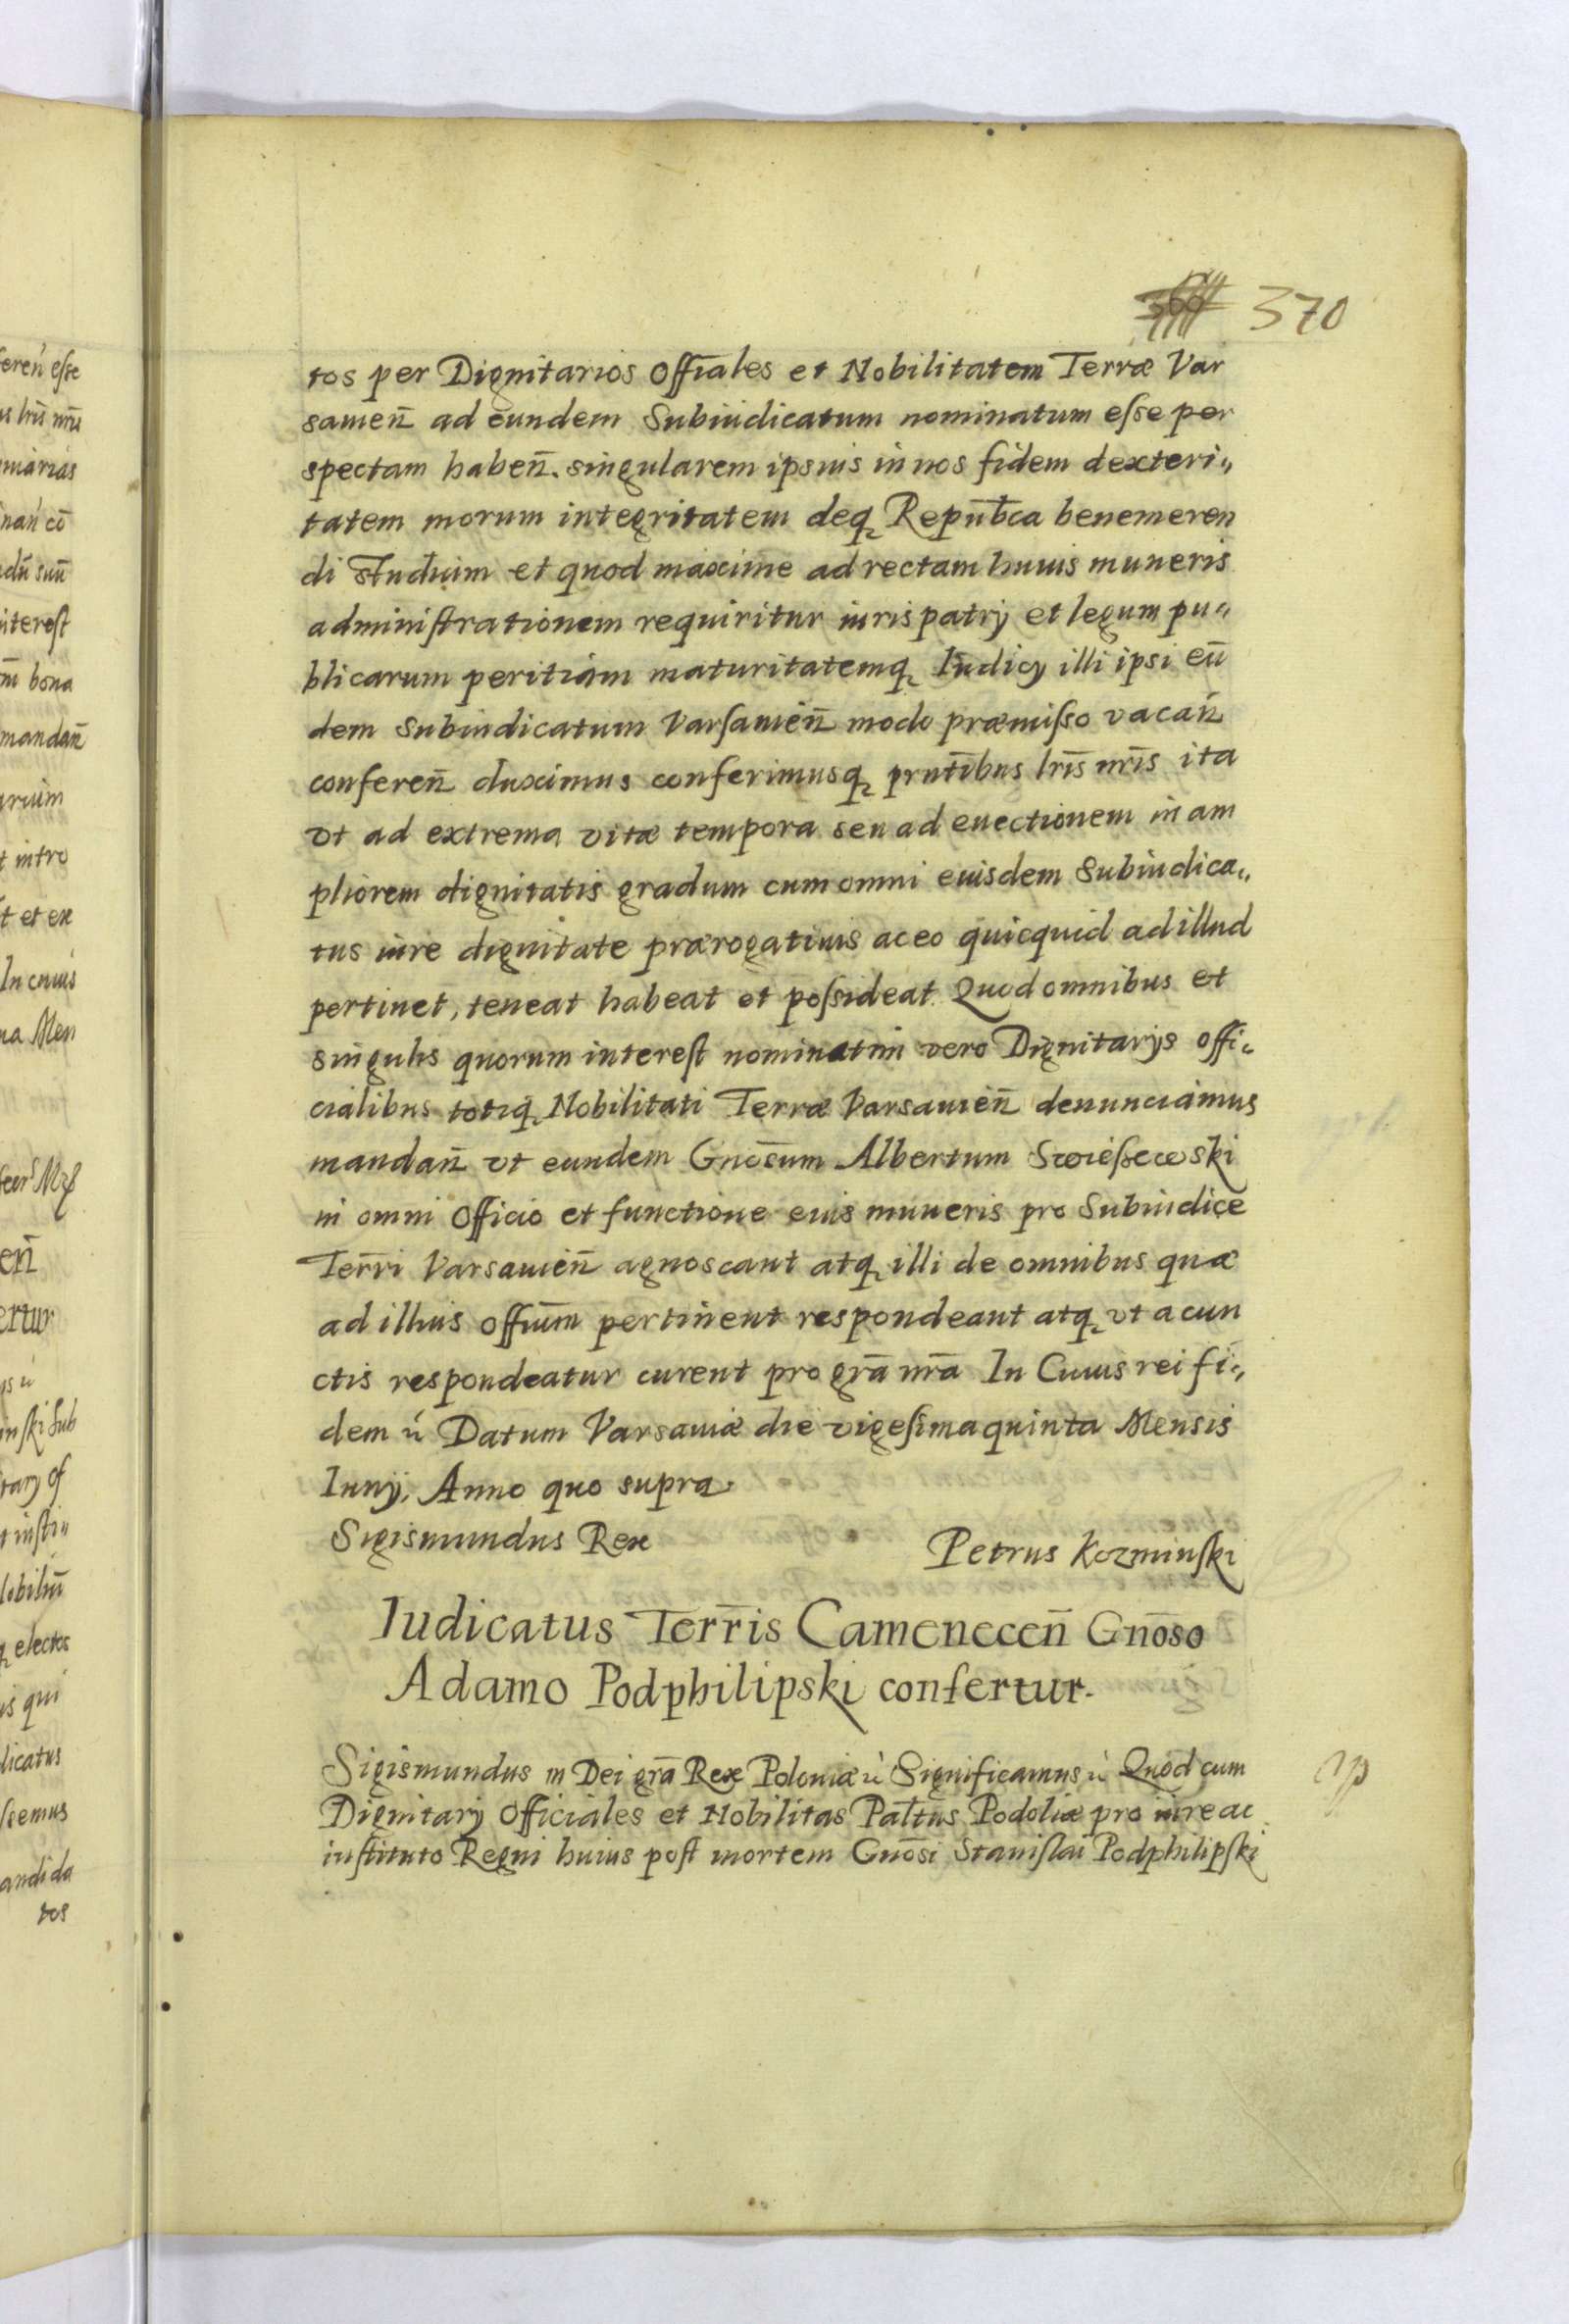 370
tos per Dignitarios Offiales et Nobilitatem Terræ Var
sauien̄ ad eundem Subiudicatum nominatum esse per
spectam haben̄. singularem ipsius in nos fidem dexteri„
tatem morum integritatem deq̨ Repub̄ca benemeren
di studium et quod maxime ad rectam huius muneris
administrationem requiritur iuris patrij et legum pu„
blicarum peritiam maturitatemq̨ Iudicij illi ipsi eū
dem Subiudicatum Varsauien̄ modo præmisso vacan̄
conferen̄ duximus conferimusq̨ prntībus lrīs nrīs ita
vt ad extrema vitæ tempora seu ad euectionem in am
pliorem dignitatis gradum cum omni euisdem Subiudica„
tus iure dignitate prærogatiuis ac eo quicquid ad illud
pertinet, teneat habeat et possideat. Quod omnibus et
singulis quorum interest nominatim vero Dignitarijs offi„
cialibus totiq̨ Nobilitati Terræ Varsauien̄ denunciamus
mandan̄ vt eundem Gnōsum Albertum Swiessewski
in omni Officio et functione euis muneris pro Subiudice
Terr̄i Varsauien̄ agnoscant atq̨ illi de omnibus quæ
ad illius offiūm pertinent respondeant atq̨ vt a cun
ctis respondeatur curent pro grā nrā In Cuius rei fi„
dem ù Datum Varsauiæ die vigesima quinta Mensis
Iunij. Anno quo supra.
Sigismundus Rex Petrus Kozminski
Iudicatus Terr̄is Camenecen̄ Gnōso
Adamo Podphilipski confertur.
Sigismundus III Dei grā Rex Poloniæ ù Significamus ù Quod cum
Dignitarij Officiales et Nobilitas Paltn̄us Podoliæ pro iure ac
instituto Regni huius post mortem Gnōsi Stanislai Podphilipski